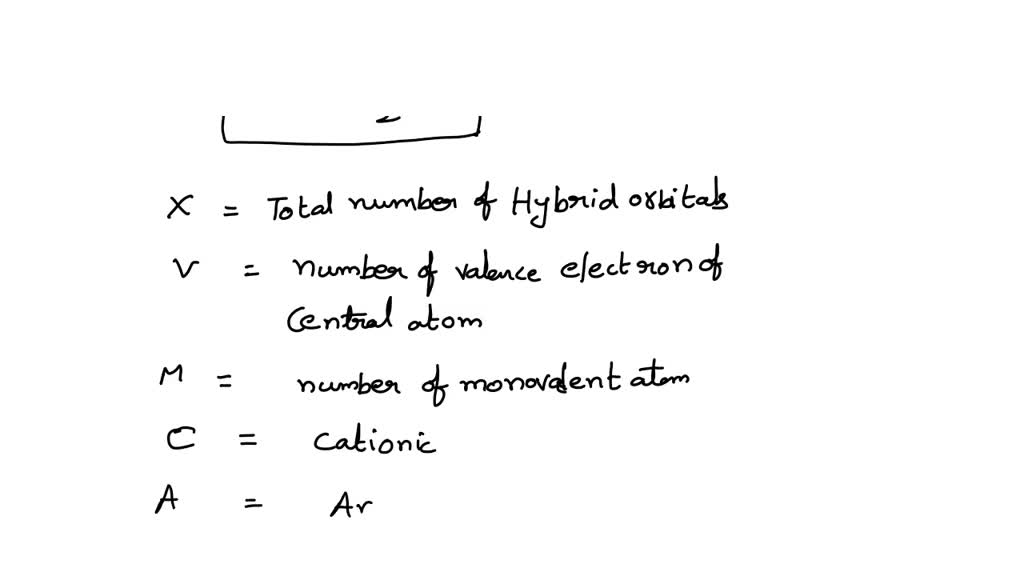 X = Total number of Hybrid orbitals
V = number of valence electron of
Central atom
M = number of monovalent atom
C = Cationic
A = Ar